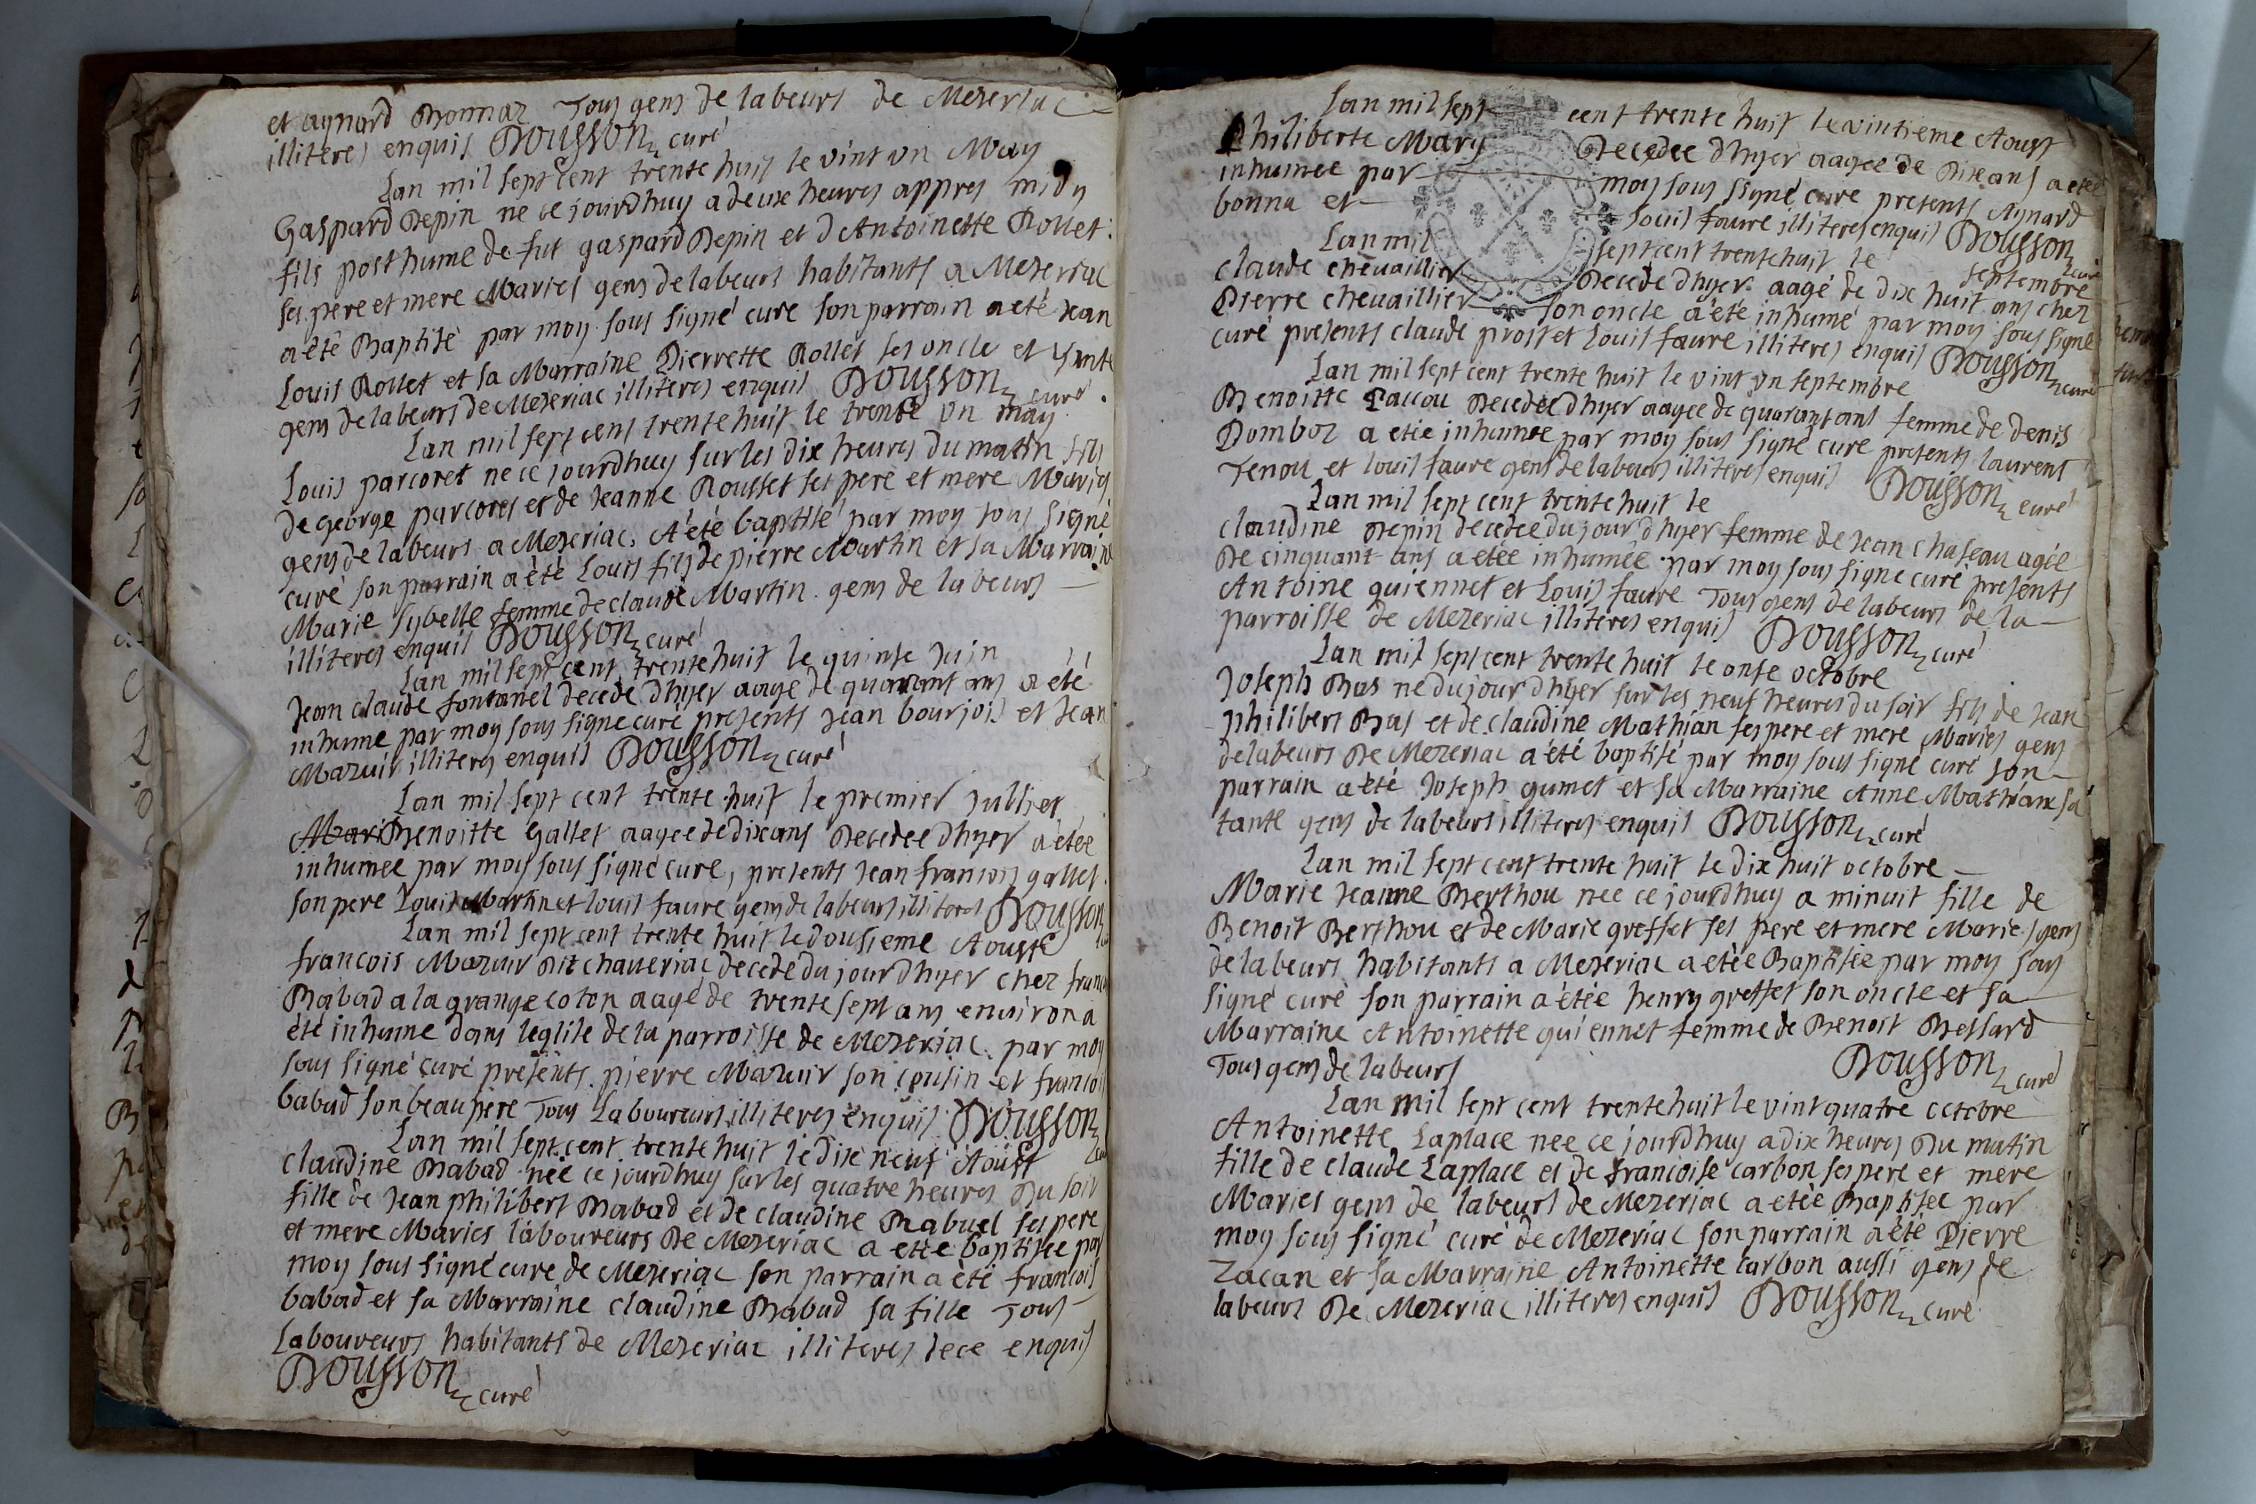 et aynard Bonnaz Tous gens de labeurs de Mezeriac
illiteres enquis Dousson curé
Lan mil sept cent trente huit le vint vn May
Gaspard Depin ne ce jourdhuy a deux heures appres midy
fils posthume de fut gaspard Depin et d Antoinette Rollet
ses pere et mere Maries gens de labeurs habitants a Mezeriac
a été Baptisé par moy sous signé curé son parrain a eté Jean
Louis Rollet et sa Marraine Pierrette Rollet ses oncle et tante
gens de labeurs de Mezeriac illiteres enquis Dousson curé
Lan mil sept cens trente huit le trente vn may
Louis parcoret ne ce jourdhuy sur les dix heures du matin fils
de George parcoret et de Jeanne Rousset ses pere et mere Maries
gens de labeurs a Mezeriac, A été baptisé par moy sous signé
curé son parrain a été Louis fils de pierre Martin et sa Marraine
Marie Sybelle femme de claude Martin gens de labeurs
illiteres enquis Dousson curé
Lan mil sept cent trente huit le quinse Juin
Jean claude fontanel decede dhyer aage de quarant ans a été
inhume par moy sous signe curé presents Jean bourjois et Jean
Mazuir illiteres enquis Dousson curé
Lan mil sept cent trente huit le premier Julliet
Mari Benoitte Gallet aagee de dix ans Decedee dhyer a étée
inhumee par moy sous signé cure, presents Jean francois gallet
son pere Louis Martin et louis faure gens de labeurs illiteres Dousson
Lan mil sept cent trente huit le dousieme Aouste
francois Mazuir Dit chaveriac decede du jour dhyer chez franc
Babad a la grange coton aagé de trente sept ans environ a
été inhume dans leglise de la parroisse de Mezeriac par moy
sous signé curé présents pierre Mazuir son cousin et francois
babad son beau pere Tous Laboureurs illiteres enquis Dousson
Lan mil sept cent trente huit le dix neuf Aoust
claudine Babad née ce jourdhuy sur les quatre heures Du soir
fille de Jean philibert Babad et de claudine Rabuel ses pere
et mere Maries laboureurs De Mezeriac a etée baptisée par
moy sous signé cure de Mezeriac son parrain a été francois
babad et sa Marraine claudine Babad sa fille Tous
Laboureurs habitants de Mezeriac illiteres de ce enquis
Dousson curé
Lan mil sept cent trente huit le vintieme Aoust
Philiberte Mary Decedee dhyer aagee de Dix ans a etée
inhumée par moy sous signé cure presents Aynard
bonna et Louis faure illiteres enquis Dousson curé
Lan mil sept cent trente huit le septembre
claude chevaillier Decede dhyer aagé de dix huit ans chez
Pierre chevaillier son oncle a été inhumé par moy sous signé
curé presents claude prost et Louis faure illiteres enquis Dousson curé
Lan mil sept cent trente huit le vint vn septembre
Benoitte Paccou Decedée dhyer aagee de quarant ans femme de denis
Dombor a etée inhumée par moy sous signe cure presents laurent
Tenou et louis faure gens de labeurs illiteres enquis Dousson curé
Lan mil sept cent trente huit le
claudine Depin decedee du jour dhyer femme de Jean chaseau agée
De cinquant ans a etée inhumée par moy sous signe curé presents
Antoine quiennet et Louis faure Tous gens de labeurs de la
parroisse de Mezeriac illiteres enquis Dousson curé
Lan mil sept cent trente huit le onse octobre
Joseph Bas ne du jour dhyer sur les neuf heures du soir fils de Jean
philibert Bas et de claudine Mathian ses pere et mere Maries gens
de labeurs De Mezeriac a été baptisé par moy sous signe curé son
parrain a été Joseph gumet et sa Marraine Anne Mathian sa
tante gens de labeurs illiteres enquis Dousson curé
Lan mil sept cent trente huit le dix huit octobre
Marie Jeanne Berthou nee ce jourdhuy a minuit fille de
Benoit Berthou et de Marie greffet ses pere et mere Maries gens
de labeurs habitants a Mezeriac a etée Baptisée par moy sous
signé curé son parrain a étée henry greffet son oncle et sa
Marraine Antoinette quiennet femme de Benoit Bessard
Tous gens de labeurs Dousson curé
Lan mil sept cent trente huit le vint quatre octobre
Antoinette Laplace nee ce jourdhuy a dix heures Du matin
fille de claude Laplace et de francoise carbon ses pere et mere
Maries gens de labeurs de Mezeriac a etée Baptisée par
moy sous signé curé de Mezeriac son parrain a été Pierre
Lacan et sa Marraine Antoinette carbon aussi gens de
labeurs De Mezeriac illiteres enquis Dousson curé